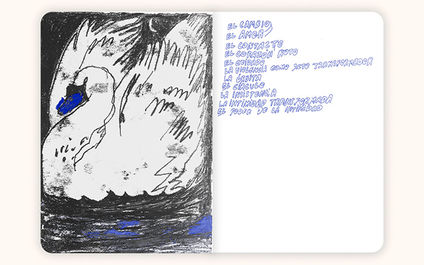 EL CAMBIO
EL AMOR
EL CONTACTO
EL CORAZÓN ROTO
EL CUIDADO
LA VIOLENCIA COMO ACTO TRANSFORMADOR
LA GRIETA
EL CÍRCULO
LA INSISTENCIA
LA INTIMIDAD TRANSFORMADA
EL PODER DE LA